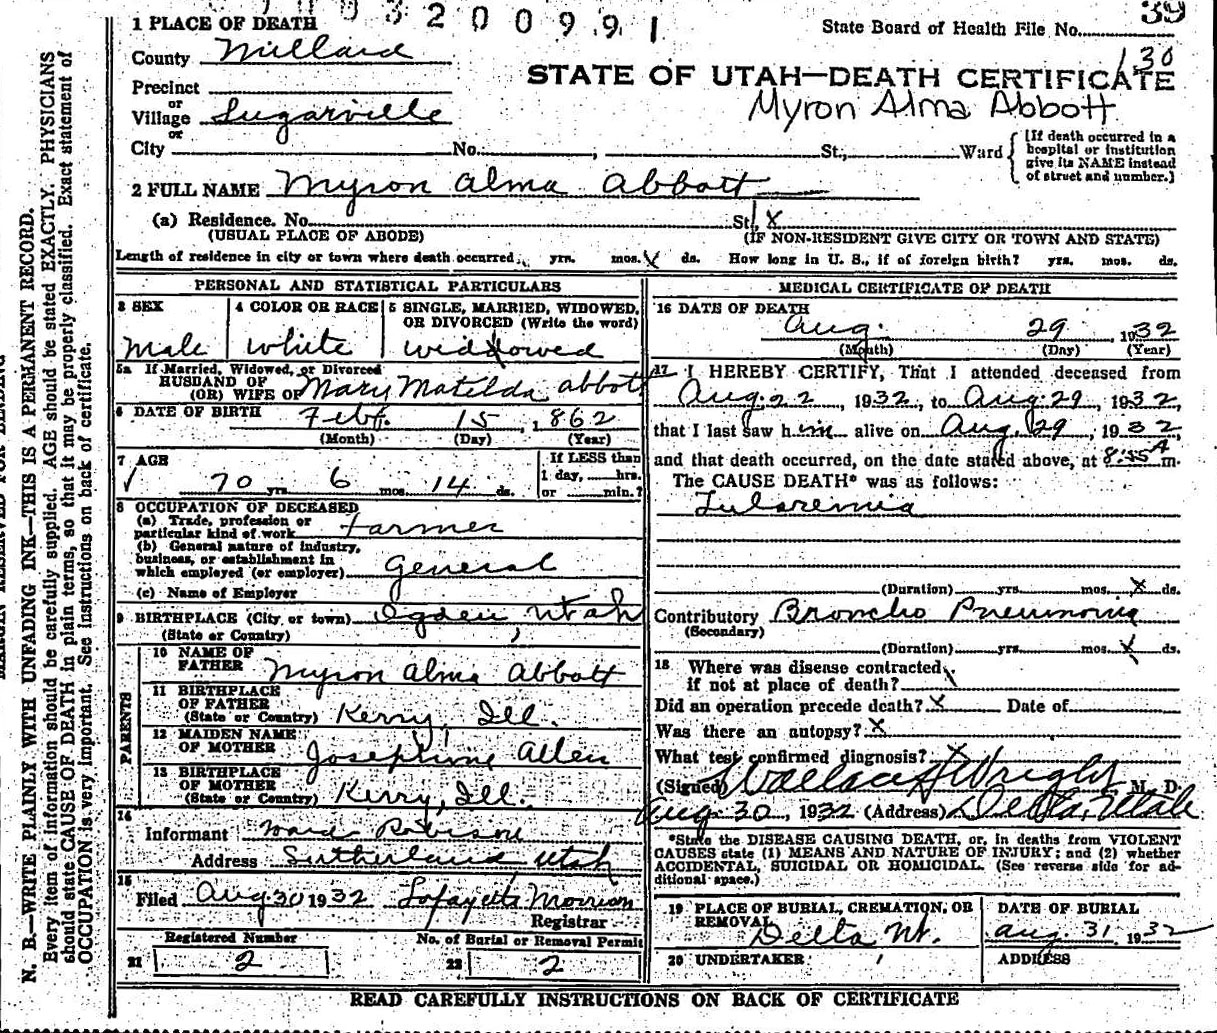 3200991
39
1 PLACE OF DEATH
State Board of Health File No.
130
County Millard
STATE OF UTAH—DEATH CERTIFICATE
Precinct
or
Village Sugarville
or
Myron Alma Abbott
City No. , St., Ward
[If death occurred in a hospital or institution give its NAME instead of street and number.]
2 FULL NAME Myron Alma Abbott
(a) Residence. No. St. X
(USUAL PLACE OF ABODE) (IF NON-RESIDENT GIVE CITY OR TOWN AND STATE)
Length of residence in city or town where death occurred yrs. mos. X ds. How long in U. S., if of foreign birth? yrs. mos. ds.
PERSONAL AND STATISTICAL PARTICULARS
3 SEX
Male
4 COLOR OR RACE
White
5 SINGLE, MARRIED, WIDOWED,
OR DIVORCED (Write the word)
Widdowed
5a If Married, Widowed, or Divorced
HUSBAND OF
(OR) WIFE OF Mary Matilda Abbott
6 DATE OF BIRTH Feb. 15, 1862
(Month) (Day) (Year)
7 AGE
70 yrs. 6 mos. 14 ds.
If LESS than
1 day, hrs.
or min.?
8 OCCUPATION OF DECEASED
(a) Trade, profession or
particular kind of work Farmer
(b) General nature of industry,
business, or establishment in
which employed (or employer) General
(c) Name of Employer
9 BIRTHPLACE (City or town) Ogden Utah
(State or Country)
PARENTS
10 NAME OF
FATHER Myron Alma Abbott
11 BIRTHPLACE
OF FATHER
(State or Country) Kerry, Ill.
12 MAIDEN NAME
OF MOTHER Josephine Allen
13 BIRTHPLACE
OF MOTHER
(State or Country) Kerry, Ill.
14
Informant Ward Robison
Address Sutherland Utah
15
Filed Aug 30 1932 Lafayette Morrison
Registrar
Registered Number
21 2
No. of Burial or Removal Permit
22 2
MEDICAL CERTIFICATE OF DEATH
16 DATE OF DEATH
Aug. 29, 1932
(Month) (Day) (Year)
17 I HEREBY CERTIFY, That I attended deceased from
Aug. 22, 1932, to Aug. 29, 1932,
that I last saw him alive on Aug. 29, 1932,
and that death occurred, on the date stated above, at 8:55 A m.
The CAUSE DEATH* was as follows:
Tularemia
(Duration) yrs. mos. X ds.
Contributory Broncho Pneumonia
(Secondary)
(Duration) yrs. mos. X ds.
18 Where was disease contracted
if not at place of death?
Did an operation precede death? X Date of
Was there an autopsy? X
What test confirmed diagnosis? X
(Signed) Wallace Wright M. D.
Aug 30, 1932 (Address) Delta, Utah
*State the DISEASE CAUSING DEATH, or, in deaths from VIOLENT
CAUSES state (1) MEANS AND NATURE OF INJURY; and (2) whether
ACCIDENTAL, SUICIDAL OR HOMICIDAL. (See reverse side for ad-
ditional space.)
19 PLACE OF BURIAL, CREMATION, OR
REMOVAL
Delta Ut.
DATE OF BURIAL
Aug. 31, 1932
20 UNDERTAKER
ADDRESS
READ CAREFULLY INSTRUCTIONS ON BACK OF CERTIFICATE
N. B.—WRITE PLAINLY WITH UNFADING INK—THIS IS A PERMANENT RECORD.
Every item of information should be carefully supplied. AGE should be stated EXACTLY. PHYSICIANS
should state CAUSE OF DEATH in plain terms, so that it may be properly classified. Exact statement of
OCCUPATION is very important. See instructions on back of certificate.